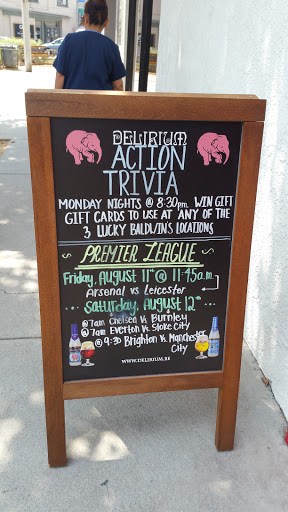 DELIRIUM
ACTION
TRIVIA
MONDAY NIGHTS @ 8:30pm WIN GIFT
GIFT CARDS TO USE AT ANY OF THE
3 LUCKY BALDWINS LOCATIONS
PREMIER LEAGUE
Friday, AUGUST 11th @ 11:45a.m.
Arsenal vs Leicester
Saturday, AUGUST 12th
@ 7am Chelsea Vs. Burnley
@ 7am Everton Vs. Stoke City
@ 9:30 Brighton Vs. Manchester
City
WWW.DELIRIUM.BE